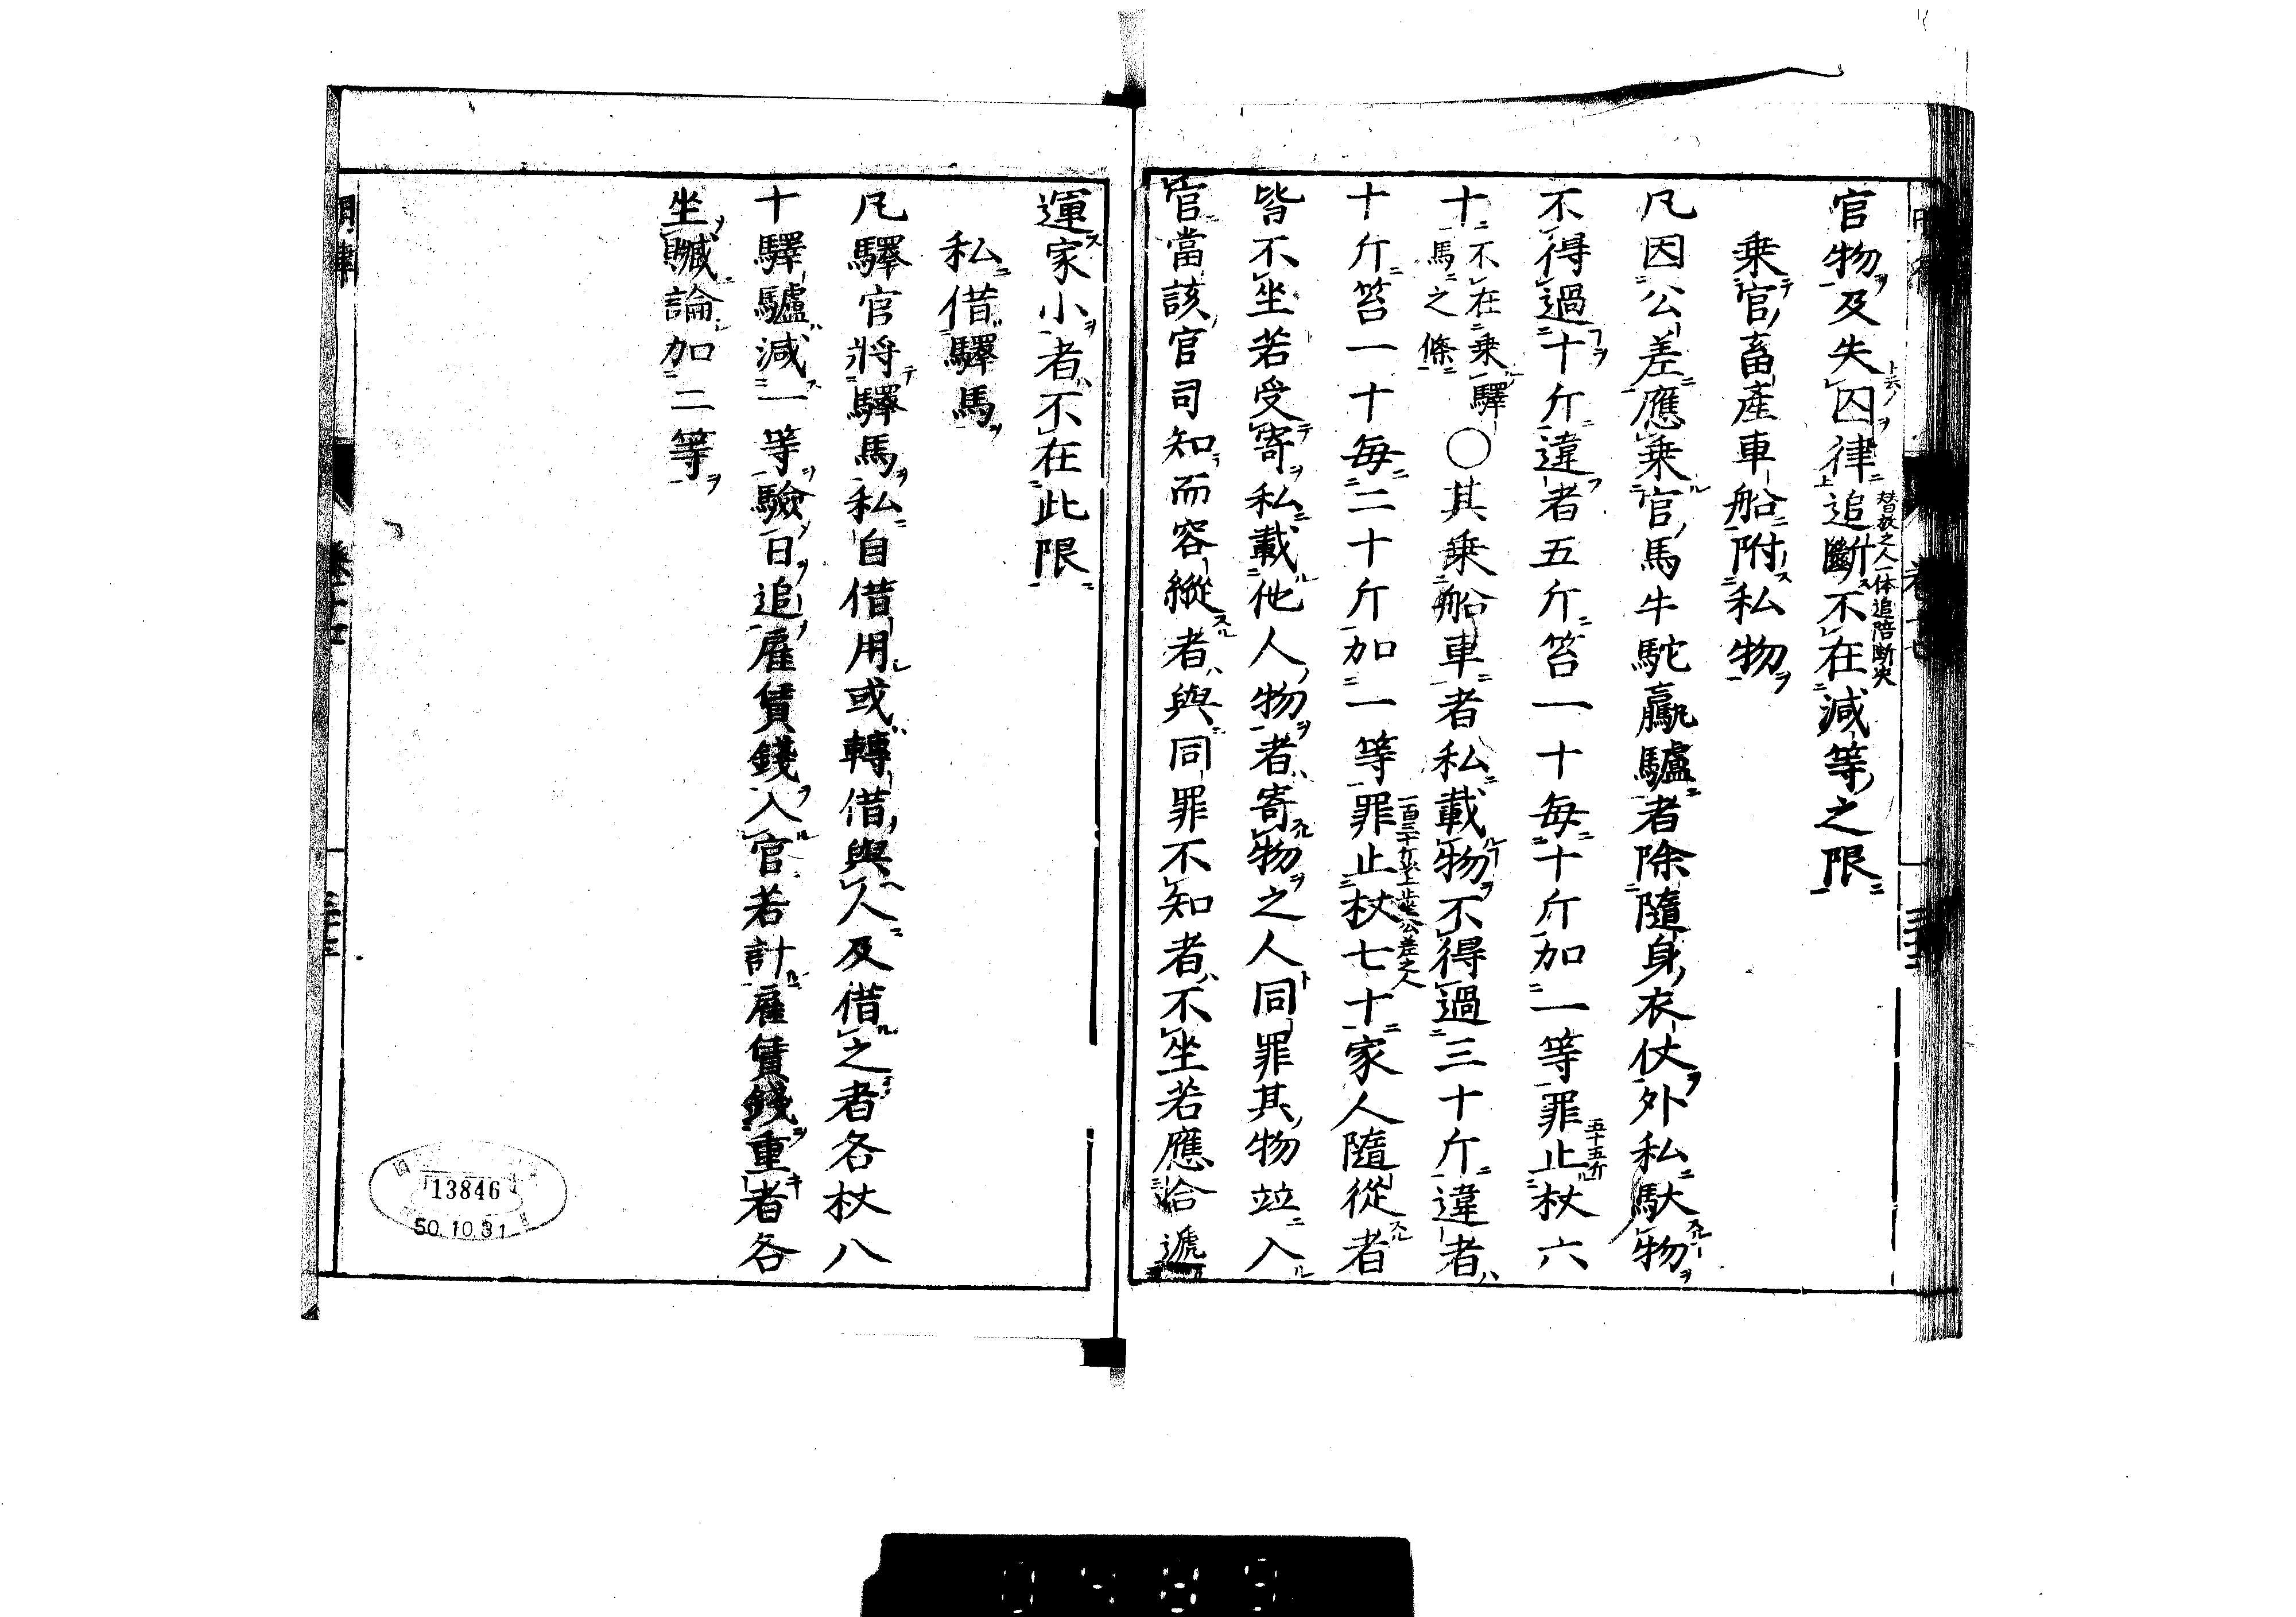 官物及失囚律追斷不在減等之限
替放之人一体追陪断決
乗官畜產車船附私物
凡因公差應乗官馬牛駝驘驢者除隨身衣仗外私馱物
不得過十斤違者五斤笞一十每十斤加一等罪止杖六
五十五斤
十不在乗驛馬之條〇其乗船車者私載物不得過三十斤違者
十斤笞一十每二十斤加一等罪止杖七十家人隨從者
一百三十斤以上止坐公差之人
皆不坐若受寄私載他人物者寄物之人同罪其物竝入
官當該官司知而容縱者與同罪不知者不坐若應合遞
運家小者不在此限
私借驛馬
凡驛官將驛馬私自借用或轉借與人及借之者各杖八
十驛驢減一等驗日追雇賃錢入官若計雇賃錢重者各
坐贓論加二等
明律
卷十七
13846
50.10.31